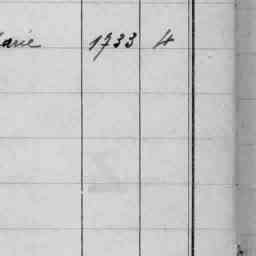 arie 1733 4